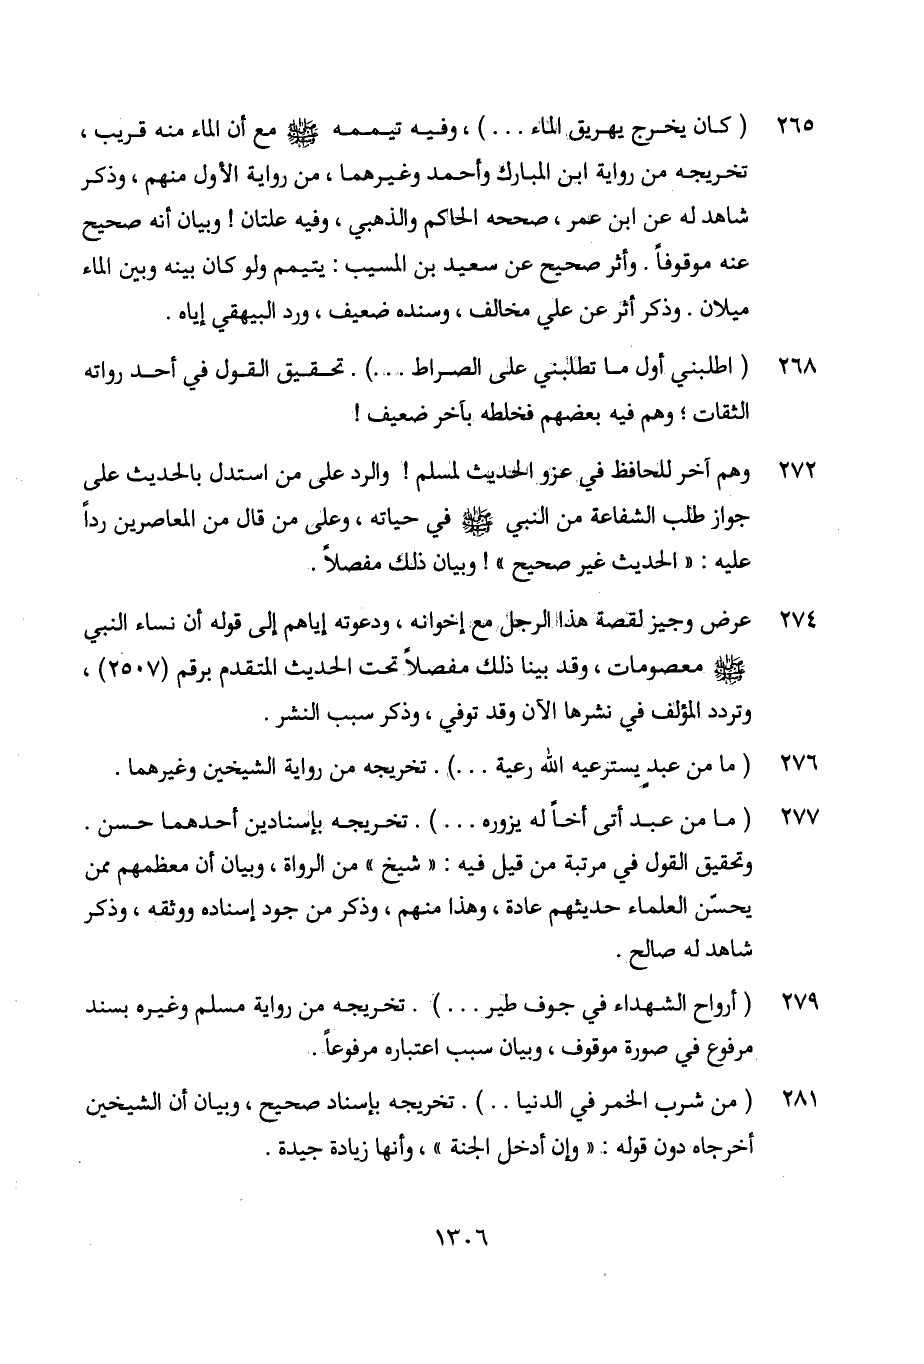 ٢٦٥ ( كان يخرج يهريق الماء ... ) ، وفيه تيممه ﷺ مع أن الماء منه قريب ،
تخريجه من رواية ابن المبارك وأحمد وغيرهما ، من رواية الأول منهم ، وذكر
شاهد له عن ابن عمر ، صححه الحاكم والذهبي ، وفيه علتان ! وبيان أنه صحيح
عنه موقوفاً . وأثر صحيح عن سعيد بن المسيب : يتيمم ولو كان بينه وبين الماء
ميلان . وذكر أثر عن علي مخالف ، وسنده ضعيف ، ورد البيهقي إياه .
٢٦٨ ( اطلبني أول ما تطلبني على الصراط ... ) . تحقيق القول في أحد رواته
الثقات ؛ وهم فيه بعضهم فخلطه بآخر ضعيف !
٢٧٢ وهم آخر للحافظ في عزو الحديث لمسلم ! والرد على من استدل بالحديث على
جواز طلب الشفاعة من النبي ﷺ في حياته ، وعلى من قال من المعاصرين رداً
عليه : « الحديث غير صحيح » ! وبيان ذلك مفصلاً .
٢٧٤ عرض وجيز لقصة هذا الرجل مع إخوانه ، ودعوته إياهم إلى قوله أن نساء النبي
ﷺ معصومات ، وقد بينا ذلك مفصلاً تحت الحديث المتقدم برقم (٢٥٠٧) ،
وتردد المؤلف في نشرها الآن وقد توفي ، وذكر سبب النشر .
٢٧٦ ( ما من عبدٍ يسترعيه الله رعية ... ) . تخريجه من رواية الشيخين وغيرهما .
٢٧٧ ( ما من عبد أتى أخاً له يزوره ... ) . تخريجه بإسنادين أحدهما حسن .
وتحقيق القول في مرتبة من قيل فيه : « شيخ » من الرواة ، وبيان أن معظمهم ممن
يحسّن العلماء حديثهم عادة ، وهذا منهم ، وذكر من جود إسناده ووثقه ، وذكر
شاهد له صالح .
٢٧٩ ( أرواح الشهداء في جوف طير ... ) . تخريجه من رواية مسلم وغيره بسند
مرفوع في صورة موقوف ، وبيان سبب اعتباره مرفوعاً .
٢٨١ ( من شرب الخمر في الدنيا .. ) . تخريجه بإسناد صحيح ، وبيان أن الشيخين
أخرجاه دون قوله : « وإن أدخل الجنة » ، وأنها زيادة جيدة .
١٣٠٦